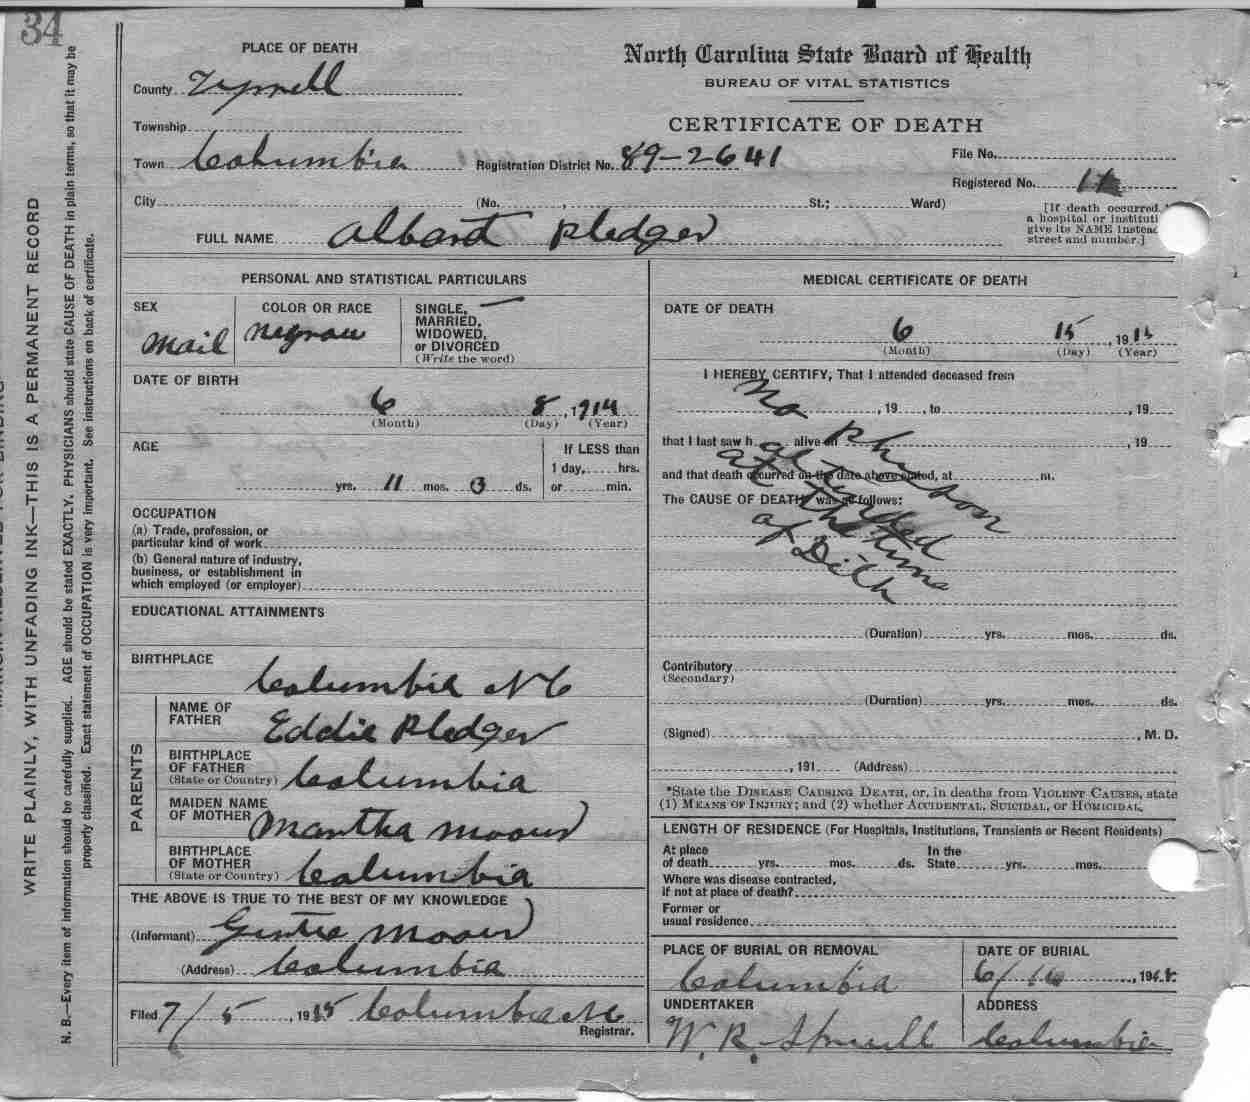 34
PLACE OF DEATH
County Tyrrell
Township
Town Columbia
City
North Carolina State Board of Health
BUREAU OF VITAL STATISTICS
CERTIFICATE OF DEATH
Registration District No. 89-2641
File No.
Registered No.
(No. , St.; Ward)
[If death occurred
a hospital or instituti
give its NAME instead
street and number.]
FULL NAME Albard Pledger
PERSONAL AND STATISTICAL PARTICULARS
SEX
Mail
COLOR OR RACE
negrow
SINGLE, —
MARRIED,
WIDOWED,
or DIVORCED
(Write the word)
DATE OF BIRTH
6 8, 1914
(Month) (Day) (Year)
AGE
yrs. 11 mos. ds.
If LESS than
1 day, hrs.
or min.
OCCUPATION
(a) Trade, profession, or
particular kind of work
(b) General nature of industry,
business, or establishment in
which employed (or employer)
EDUCATIONAL ATTAINMENTS
BIRTHPLACE
Columbia NC
PARENTS
NAME OF
FATHER
Eddie Pledger
BIRTHPLACE
OF FATHER
(State or Country) Columbia
MAIDEN NAME
OF MOTHER Martha
BIRTHPLACE
OF MOTHER
(State or Country) Columbia
THE ABOVE IS TRUE TO THE BEST OF MY KNOWLEDGE
(Informant)
(Address) Columbia
Filed 7/5, 1915 Columbia NC
Registrar.
MEDICAL CERTIFICATE OF DEATH
DATE OF DEATH
6 15, 1915
(Month) (Day) (Year)
I HEREBY CERTIFY, That I attended deceased from
, 19 , to , 19
that I last saw h alive on , 19
and that death occurred on the date above stated, at m.
The CAUSE OF DEATH was as follows:
No
at the time
of Dith
(Duration) yrs. mos. ds.
Contributory
(Secondary)
(Duration) yrs. mos. ds.
(Signed) , M. D.
, 191 (Address)
*State the DISEASE CAUSING DEATH, or, in deaths from VIOLENT CAUSES, state
(1) MEANS OF INJURY; and (2) whether ACCIDENTAL, SUICIDAL, or HOMICIDAL.
LENGTH OF RESIDENCE (For Hospitals, Institutions, Transients or Recent Residents)
At place
of death yrs. mos. ds.
In the
State yrs. mos.
Where was disease contracted,
if not at place of death?
Former or
usual residence
PLACE OF BURIAL OR REMOVAL
Columbia
DATE OF BURIAL
6/16, 191
UNDERTAKER
W. R. Spruill
ADDRESS
Columbia
WRITE PLAINLY, WITH UNFADING INK—THIS IS A PERMANENT RECORD
N. B.—Every item of information should be carefully supplied. AGE should be stated EXACTLY. PHYSICIANS should state CAUSE OF DEATH in plain terms, so that it may be
properly classified. Exact statement of OCCUPATION is very important. See instructions on back of certificate.